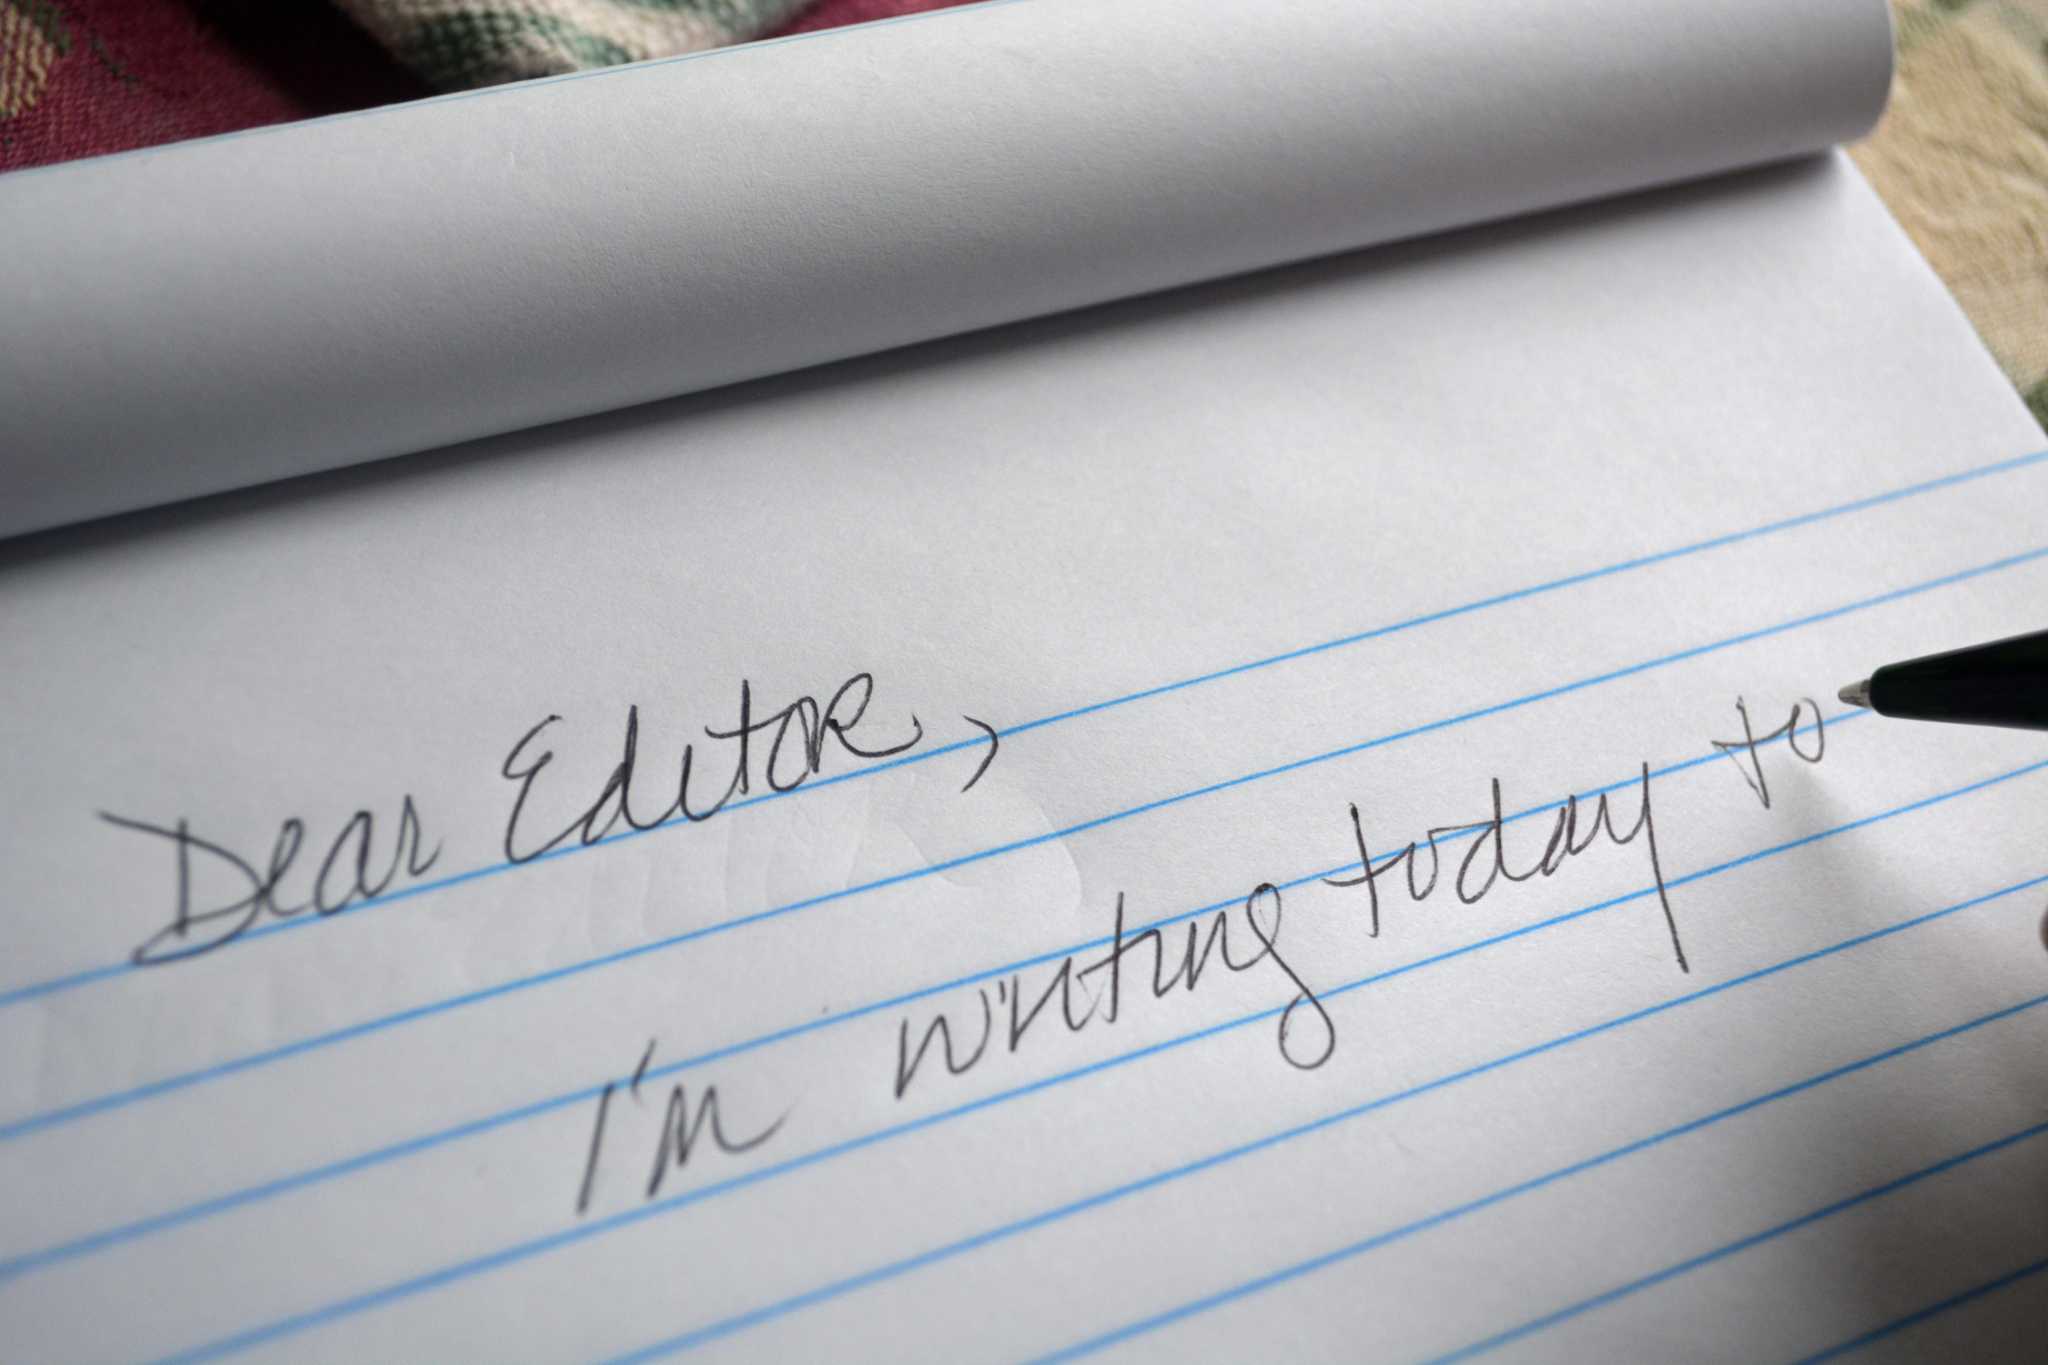 Dear Editor,
I'm writing today to